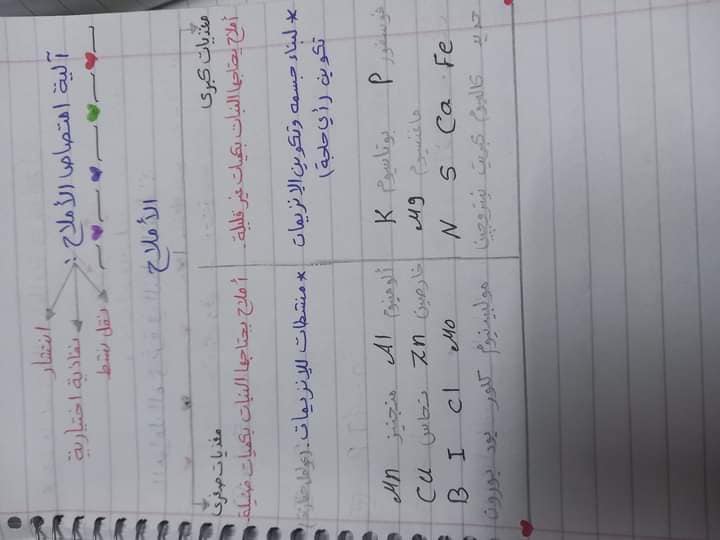 آلية امتصاص الأملاح:
انتشار
نفاذية اختيارية
نقل نشط
الأملاح
مغذيات كبرى
أملاح يحتاجها النبات بكميات غير قليلة.
* لبناء جسمه وتكوين الإنزيمات
تكوين (أي حاجة)
K P
بوتاسيوم فوسفور
Mg
ماغنسيوم
N S Ca Fe
نيتروجين كبريت كالسيوم حديد
مغذيات صغرى
أملاح يحتاجها النبات بكميات ضئيلة
* منشطات للإنزيمات.
Mn Al
منجنيز ألومنيوم
Cu Zn
نحاس خارصين
B I Cl Mo
بورون يود كلور موليبدنيوم